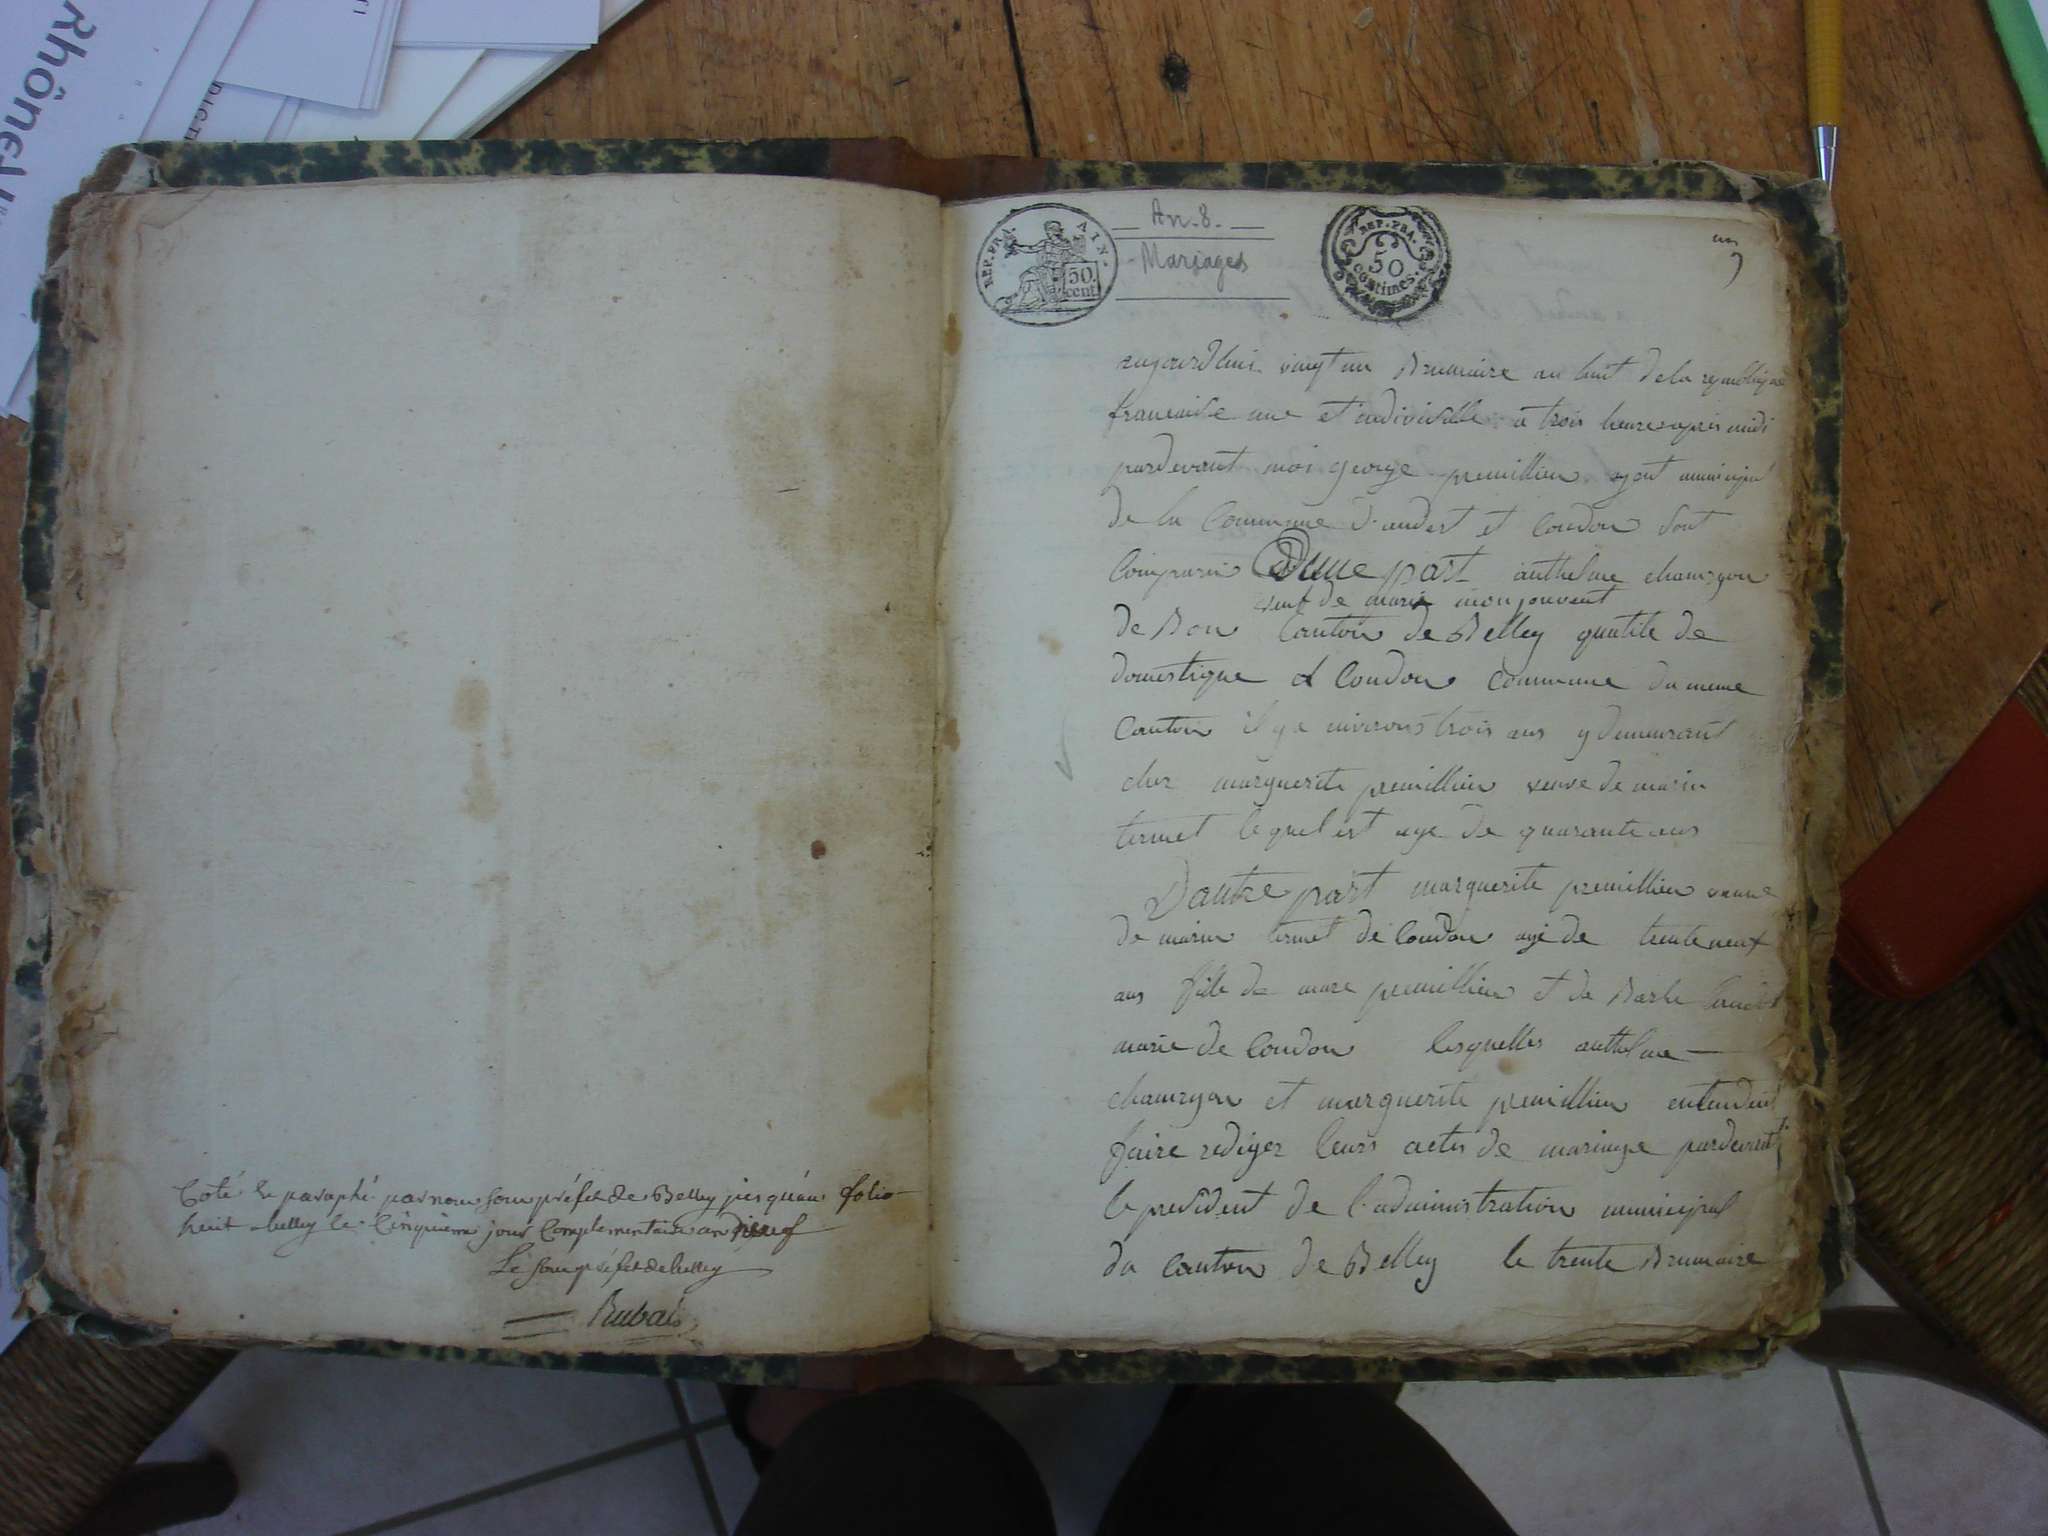 Rhône
Coté & paraphé par nous sous préfet de Belley jusqu'au folio
huit Belley le Cinquieme jour Complementaire an neuf
Le sous préfet de belley
Rubat
REP. FRA. AIN.
50. cent
An. 8.
Mariages
REP. FRA.
50
centimes.
un
aujourdhui vingt un Brumaire an huit de la republique
francaise une et indivisible a trois heures apres midi
pardevant moi george premillieu agent municipal
de la Commune d'andert et Condon sont
Comparu Dune part anthelme
veuf de marie monjouvent
de Bon Canton de Belley qualite de
domestique a Condon commune du meme
Canton il y a environs trois ans y demeurant
chez marguerite premillieu veuve de marin
termet le quel est age de quarante ans
Dautre part marguerite premillieu veuve
de marin termet de Condon age de trente neuf
ans fille de marc premillieu et de
marie de Condon lesquelles anthelme
et marguerite premillieu entendent
faire rediger leurs actes de mariage pardevant
le president de l'administration municipal
du Canton de Belley le trente Brumaire